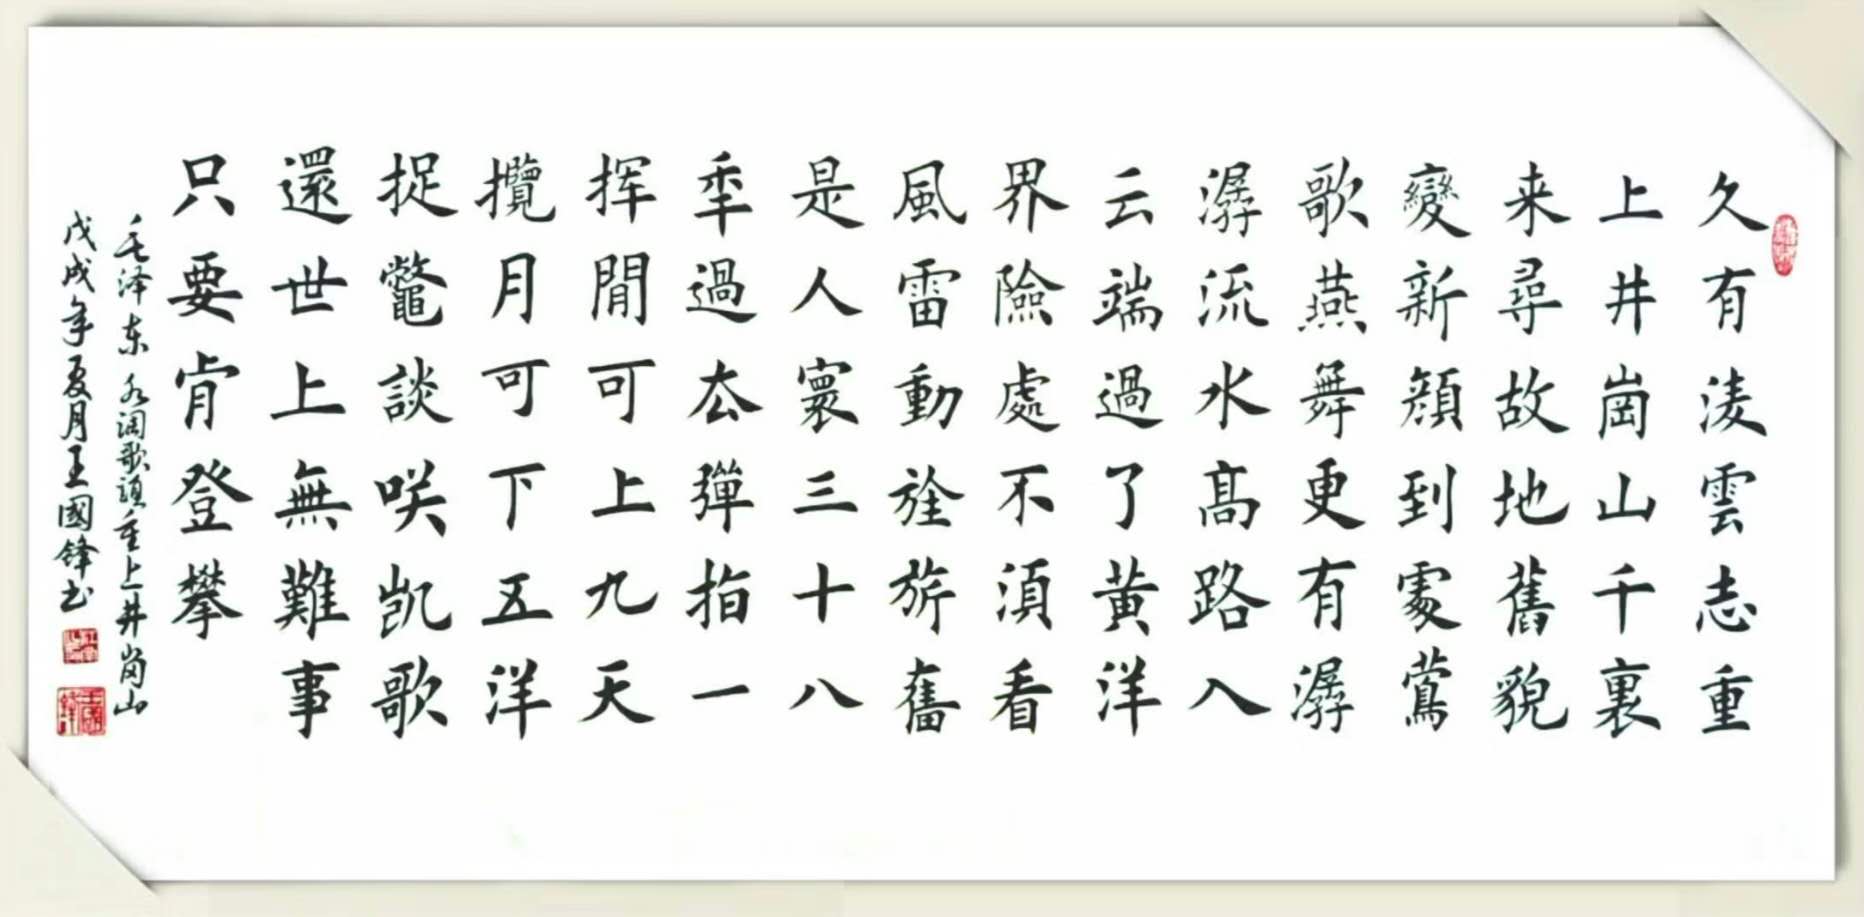 久有淩雲志重
上井崗山千裏
来尋故地舊貌
變新顔到處鶯
歌燕舞更有潺
潺流水髙路入
云端過了黄洋
界險處不須看
風雷動旌旂奮
是人寰三十八
年過去彈指一
挥閒可上九天
攬月可下五洋
捉鼈談咲凯歌
還世上無難事
只要肯登攀
毛泽东水调歌頭重上井岗山
戊戌年夏月王國鋒书